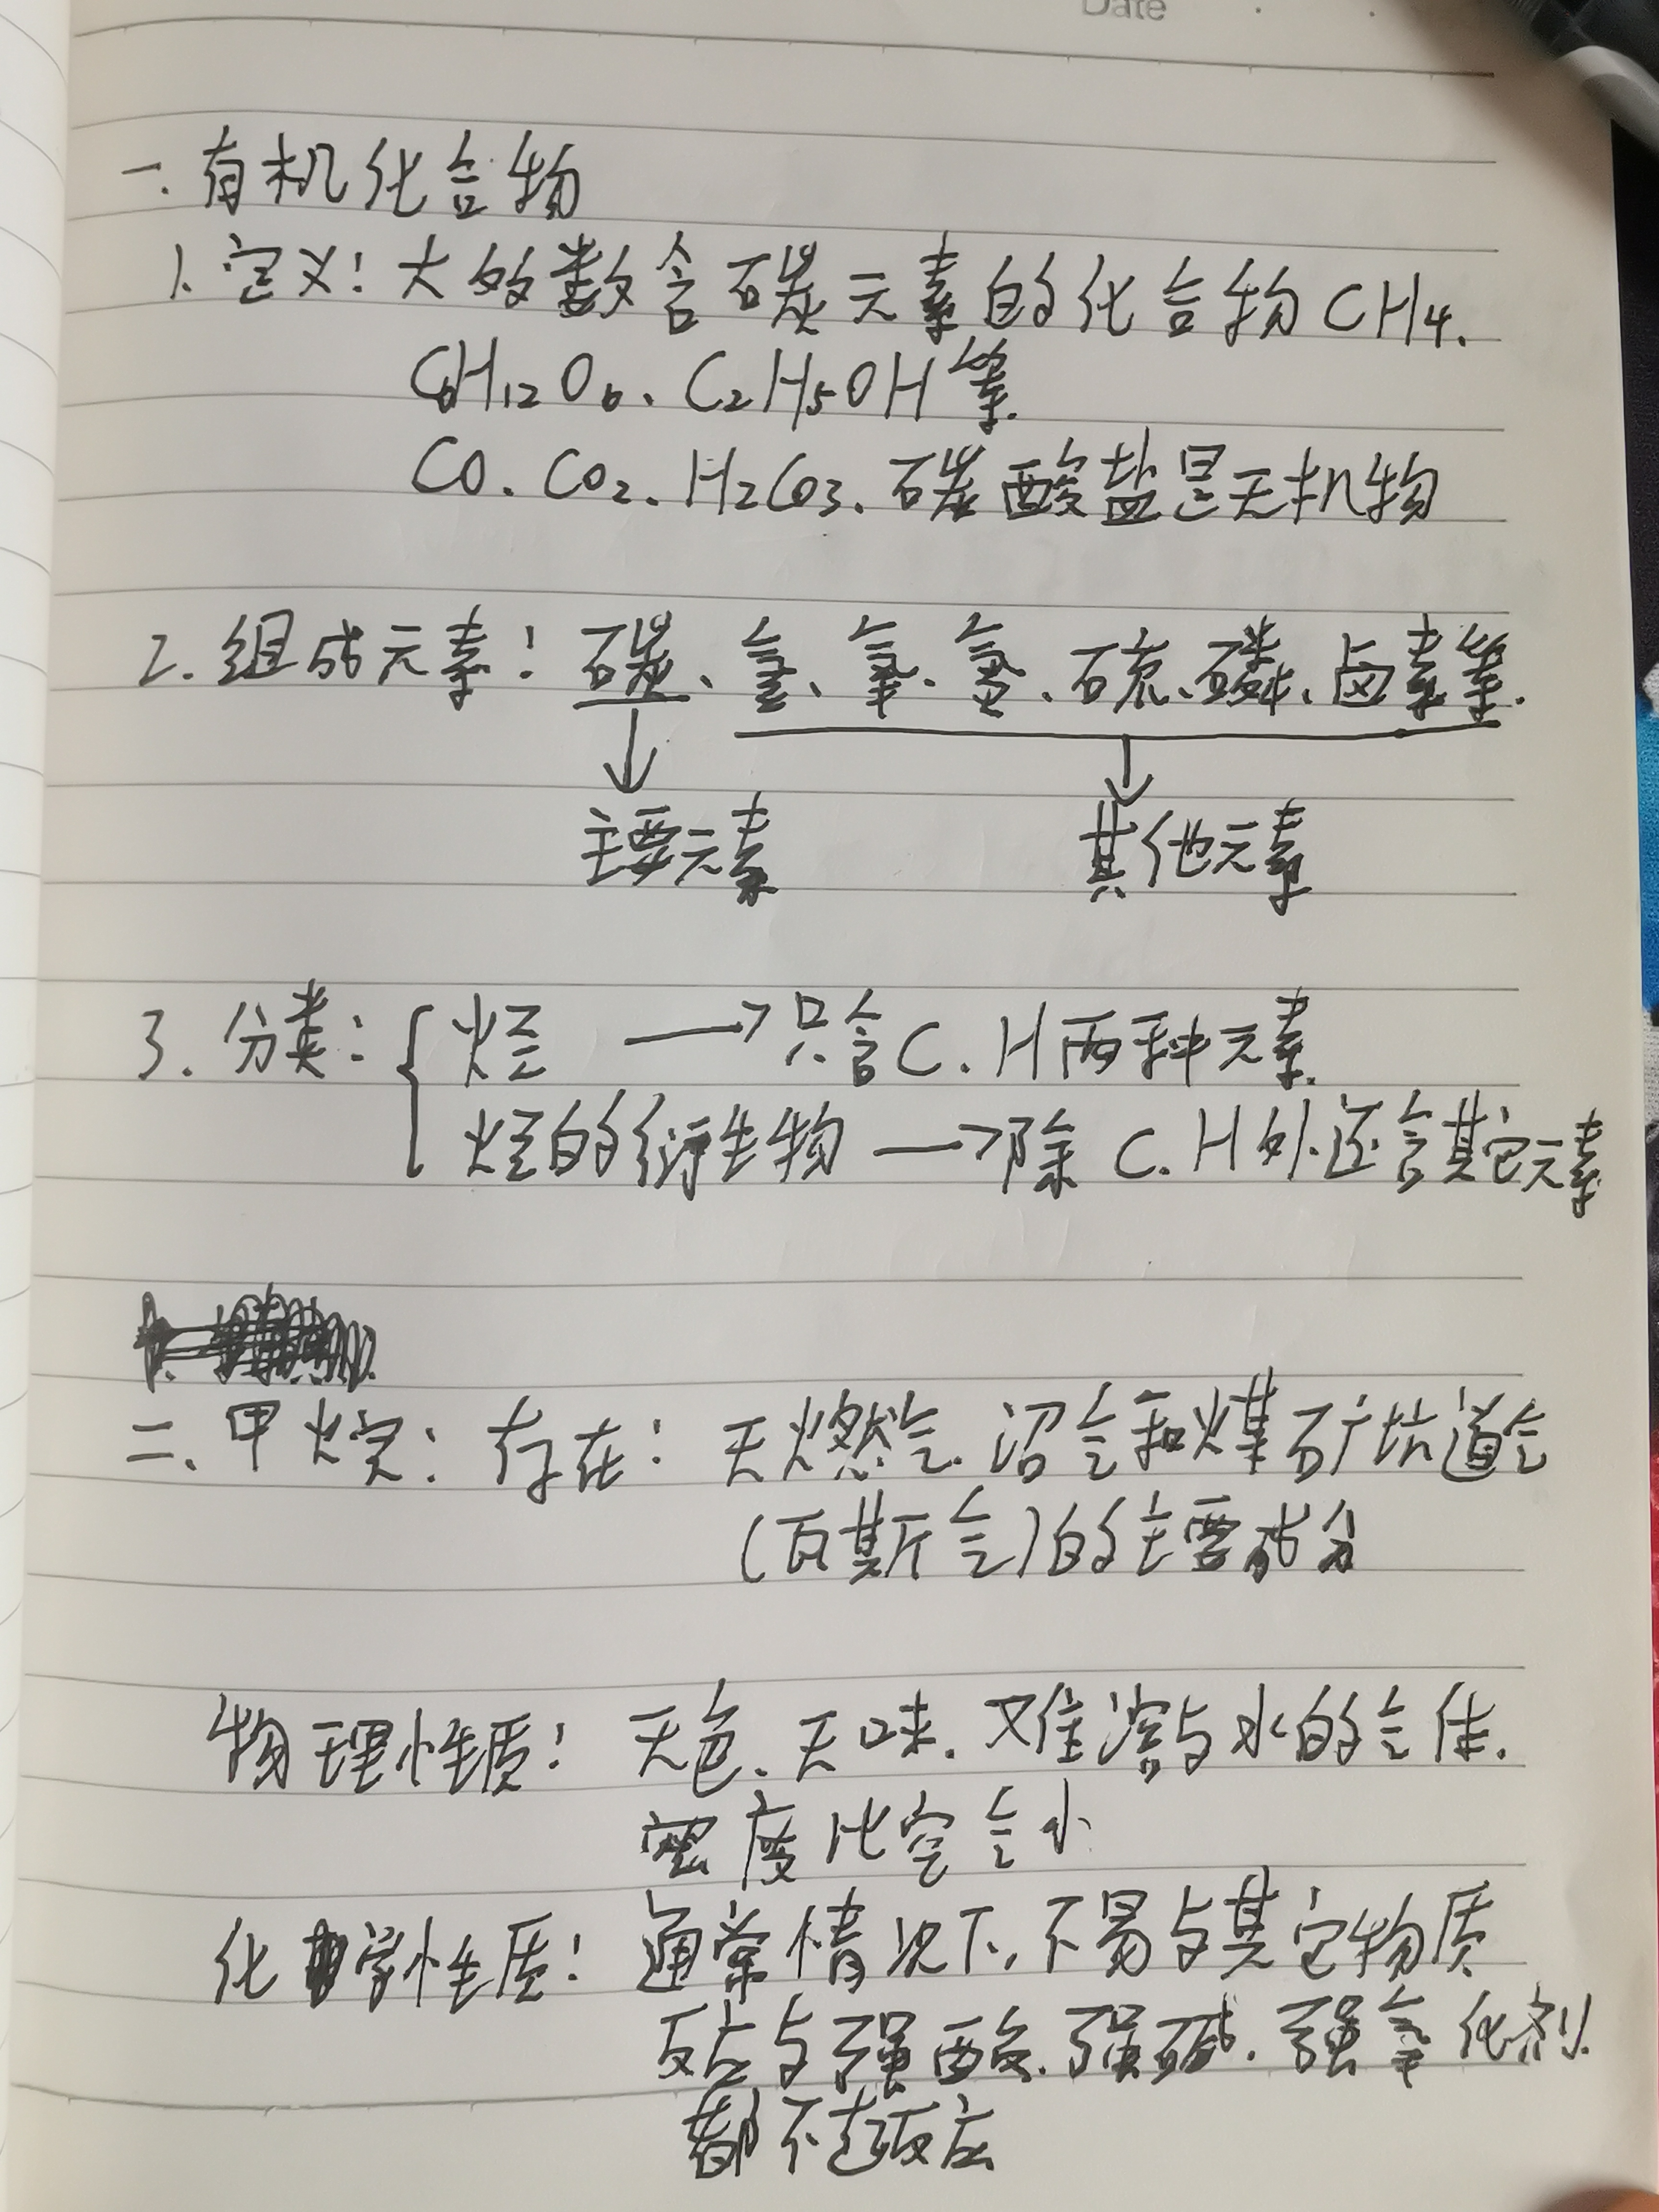 Date
一.有机化合物
1.定义:大多数含碳元素的化合物CH4.
C6H12O6、C2H5OH等.
CO、CO2、H2CO3、碳酸盐是无机物
2.组成元素:碳、氢、氧、氮、硫、磷、卤素等.
主要元素 其他元素
3.分类: { 烃 →只含C.H两种元素.
烃的衍生物 →除C.H外还含其它元素
二.甲烷:存在:天燃气.沼气和煤矿坑道气
(瓦斯气)的主要成分
物理性质:无色.无味.难溶与水的气体.
密度比空气小
化学性质:通常情况下,不易与其它物质
反应与强酸.强碱.强氧化剂
都不起反应